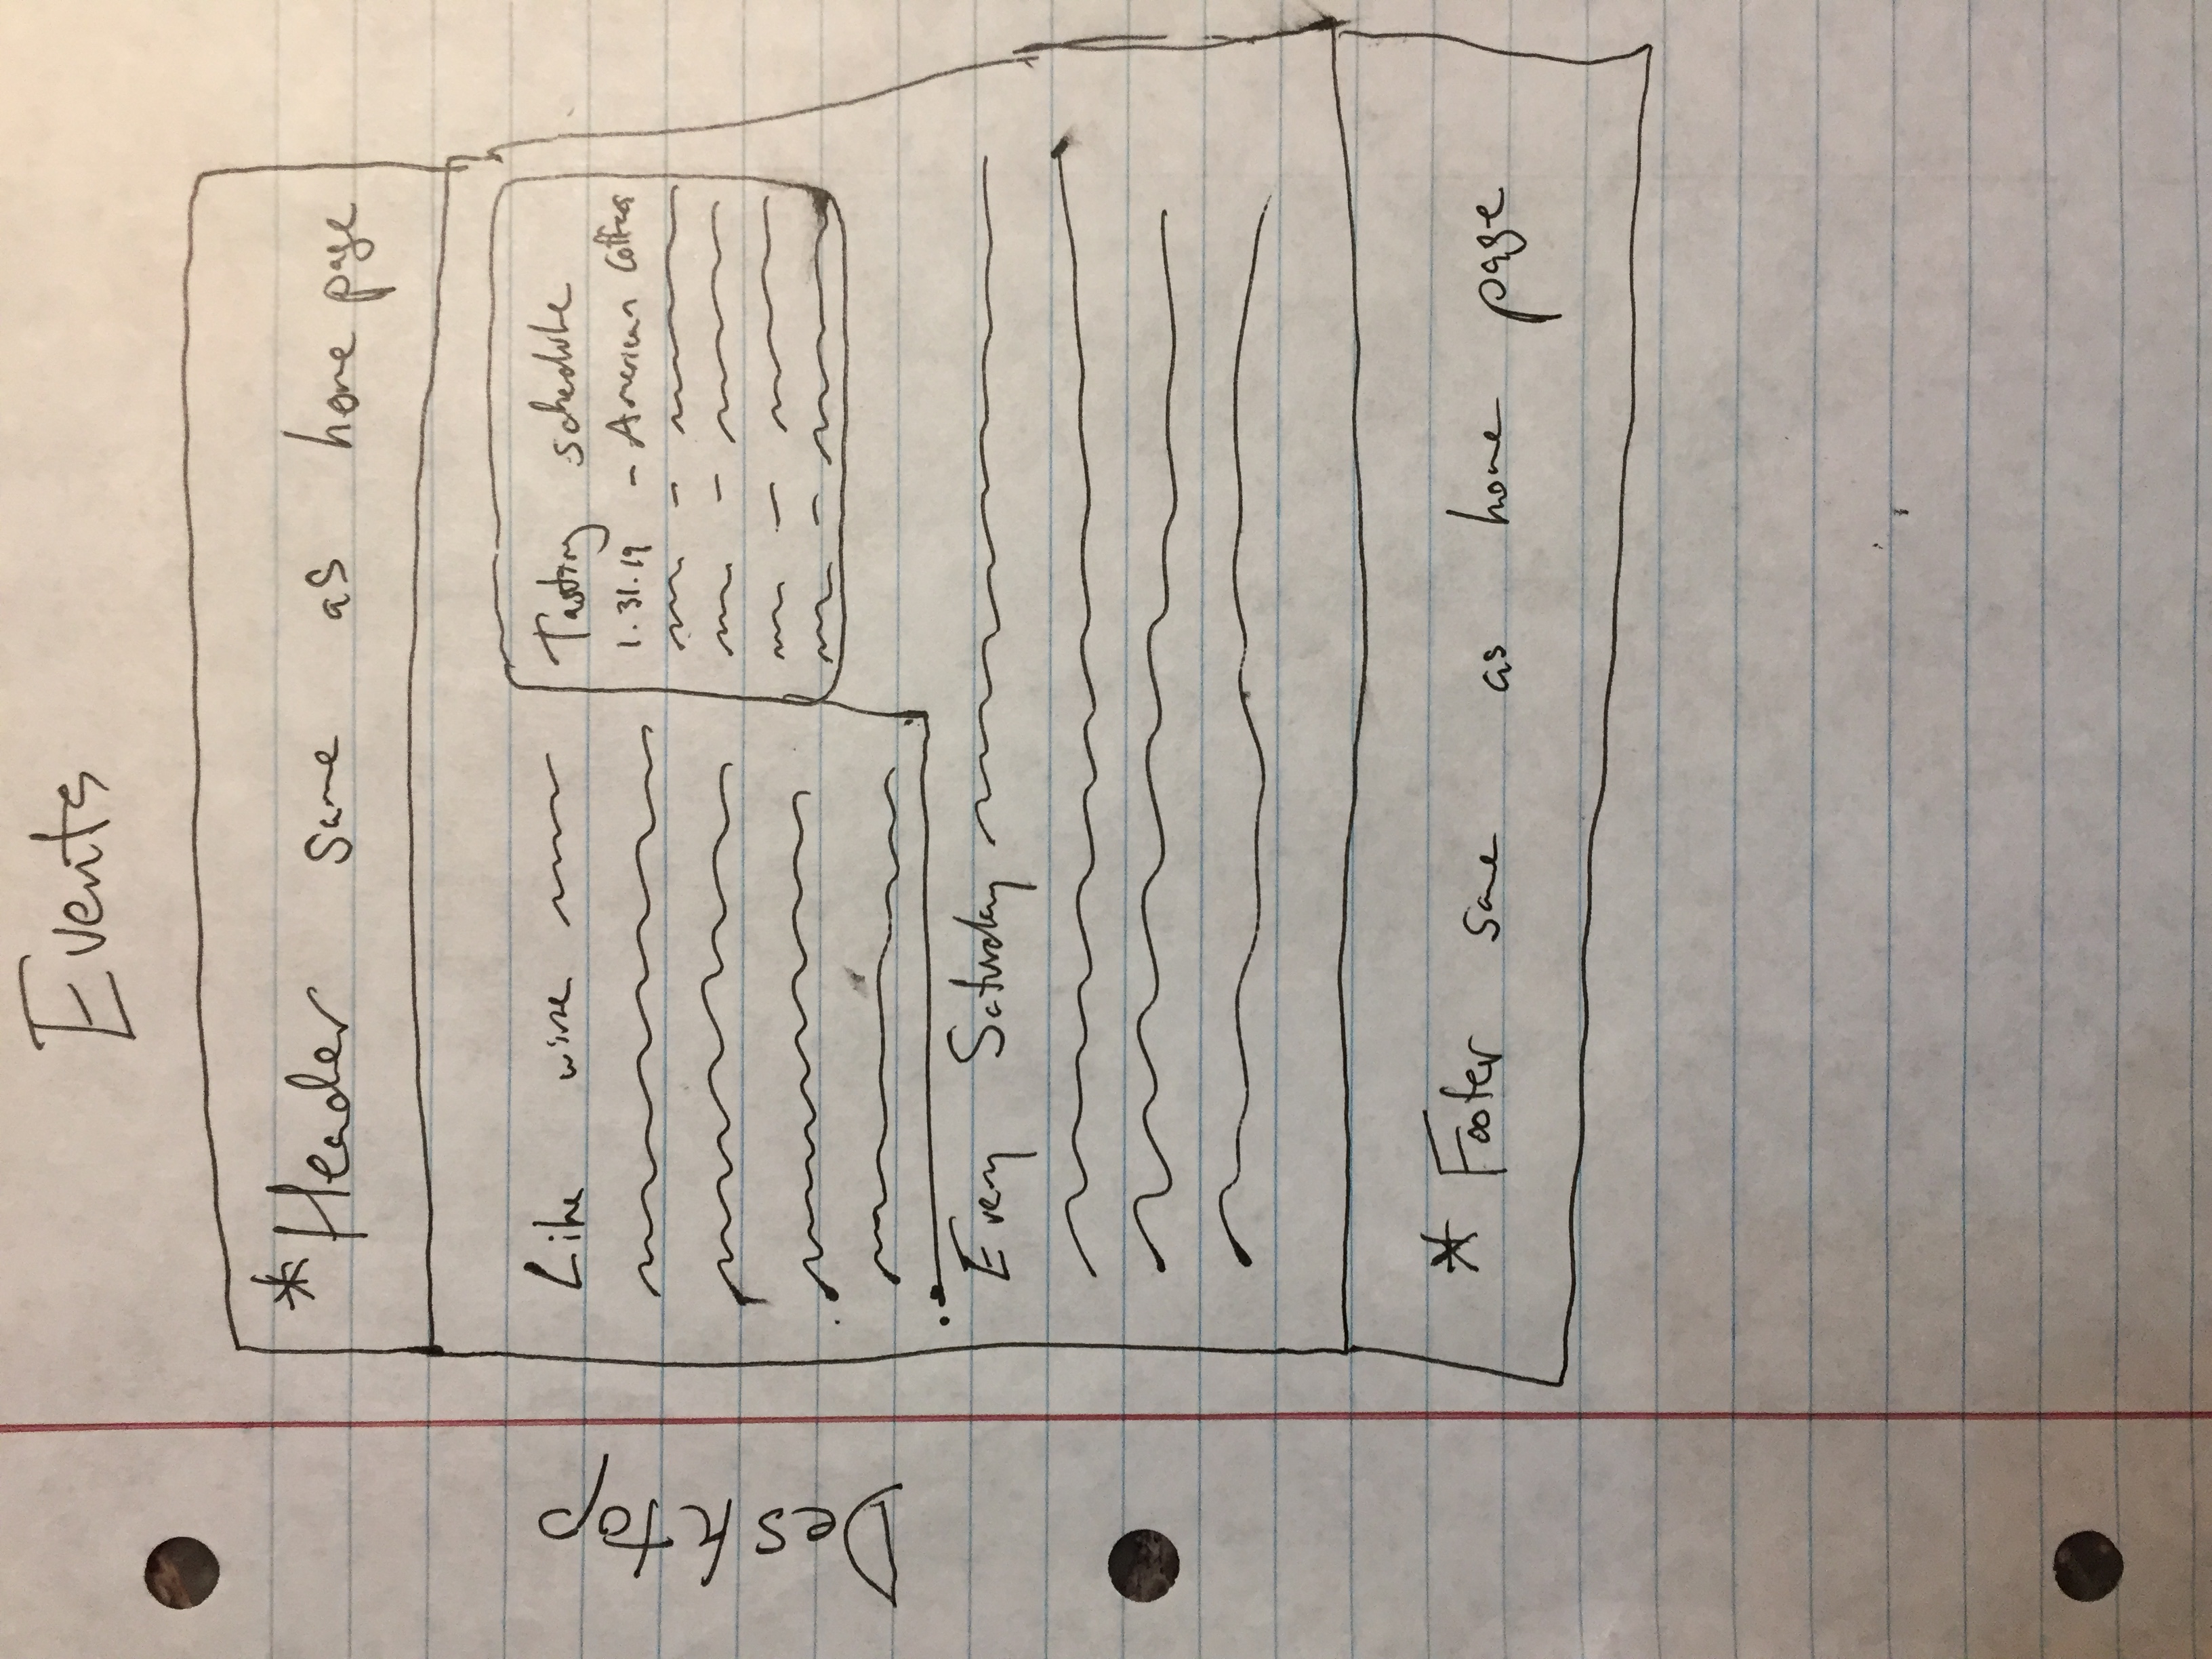 Events
*Header same as home page
Desktop
Like wine
Tasting schedule
1.31.19 - American Coffees
Every Saturday
* Footer same as home page